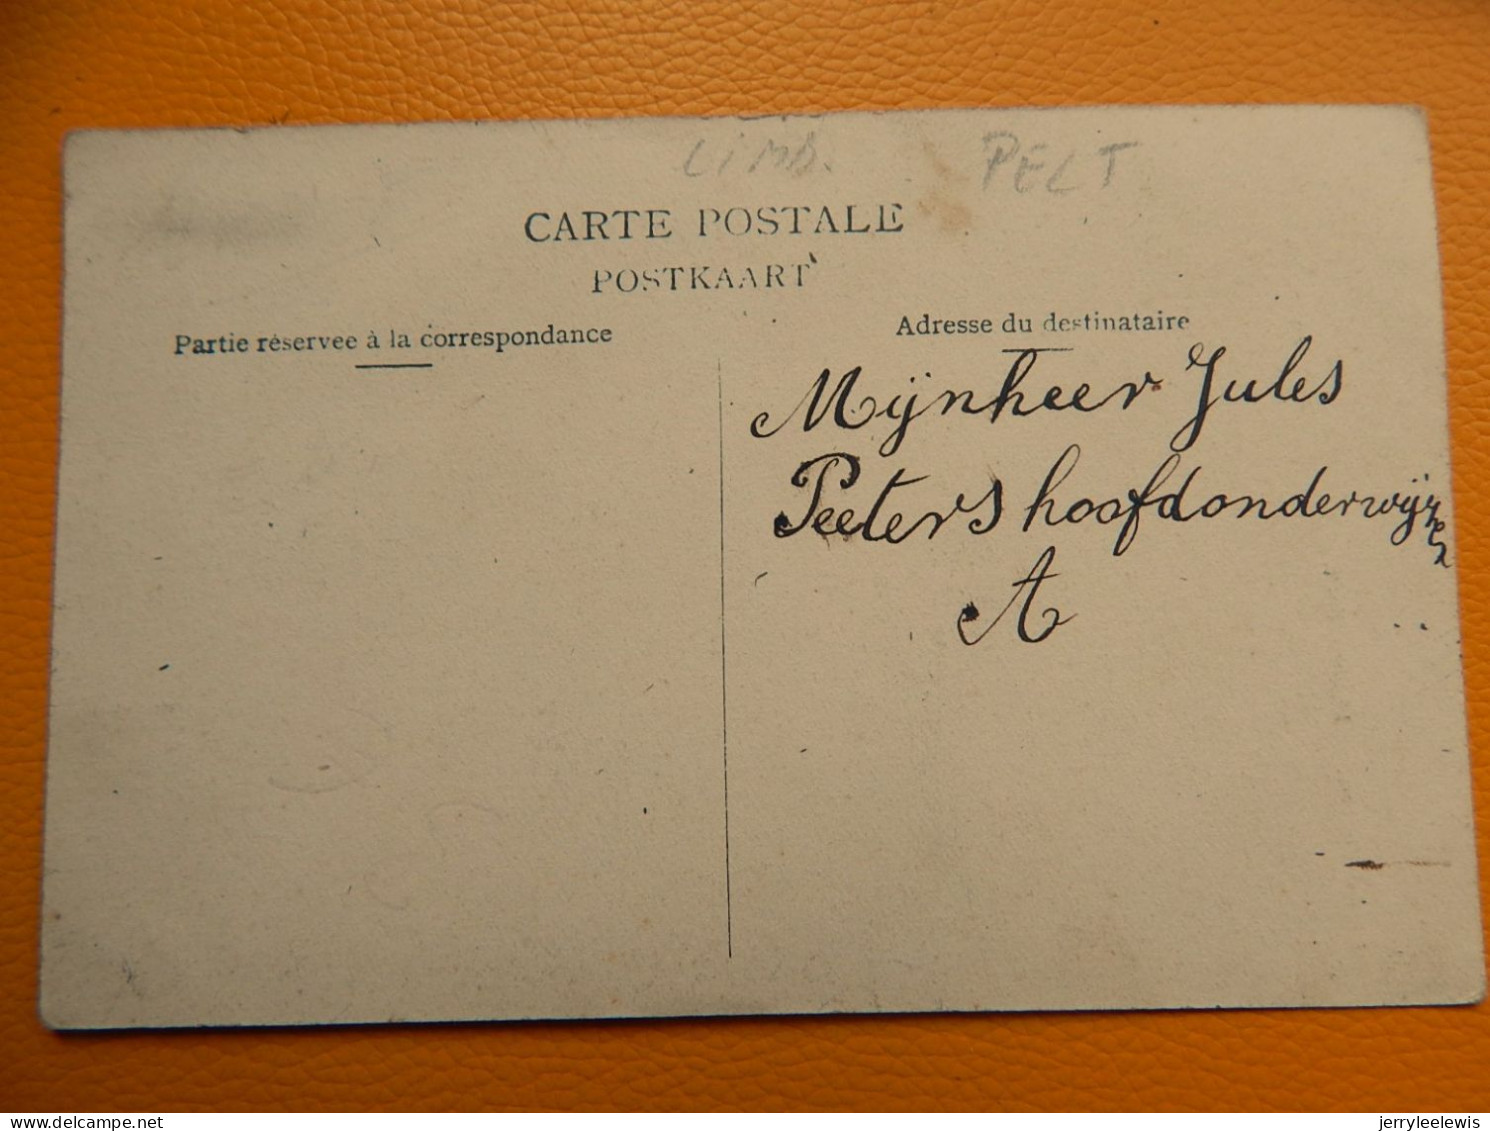 Limb. PELT
CARTE POSTALE
POSTKAART
Partie réservee à la correspondance
Adresse du destinataire
Mijnheer Jules
Peeters hoofdonderwijzer
A
delcampe.net
jerryleelewis